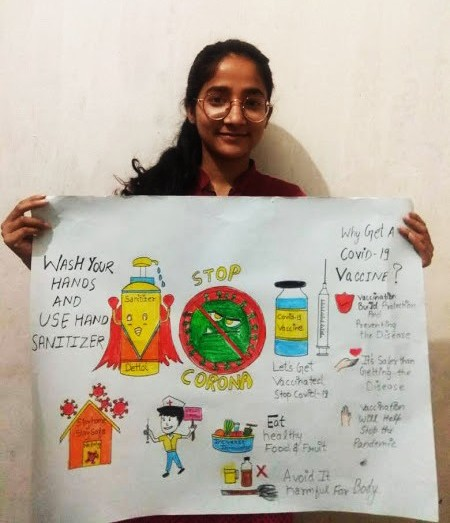 WASH YOUR
HANDS
AND
USE HAND
SANITIZER
Sanitizer
Dettol
STOP
CORONA
Covid-19
Vaccine
Let's Get
Vaccinated
Stop Covid-19
Why Get A
Covid-19
Vaccine?
Vaccination
Build Protection
And
Preventing
the Disease
It's Safer than
Getting the
Disease
Vaccination
Will Help
Stop the
Pandemic
Stay Home
Eat
healthy
Food & Fruit
Avoid It
harmful For Body